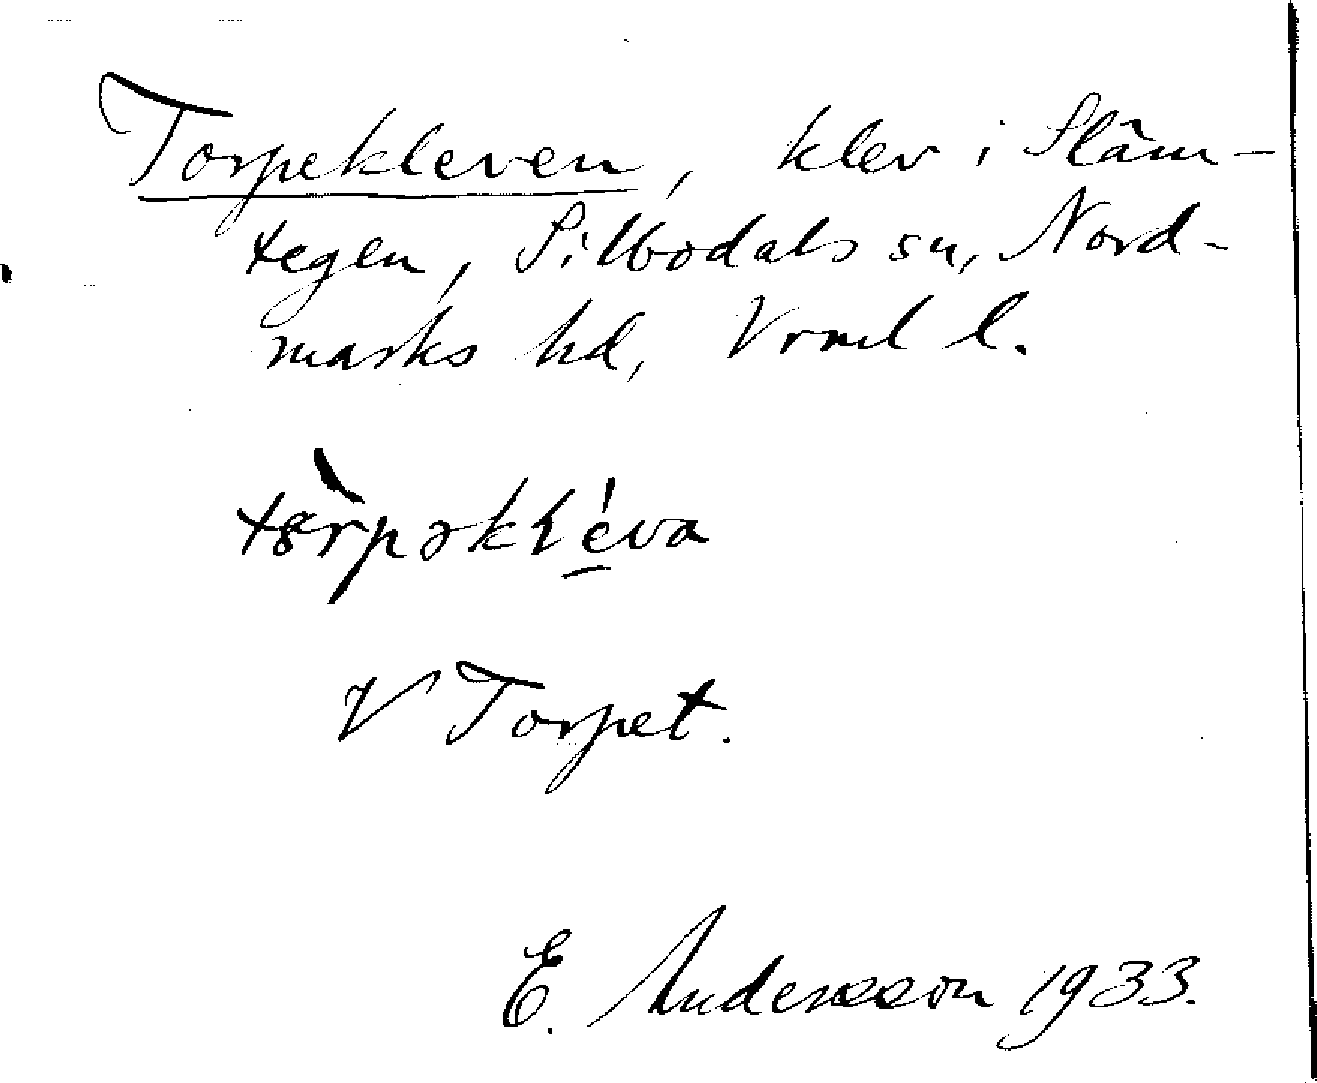 Torpekleven, klev i Släm-
tegen, Silbodals sn, Nord-
marks hd, Vrml l.
V Torpet.
E. Andersson 1933.